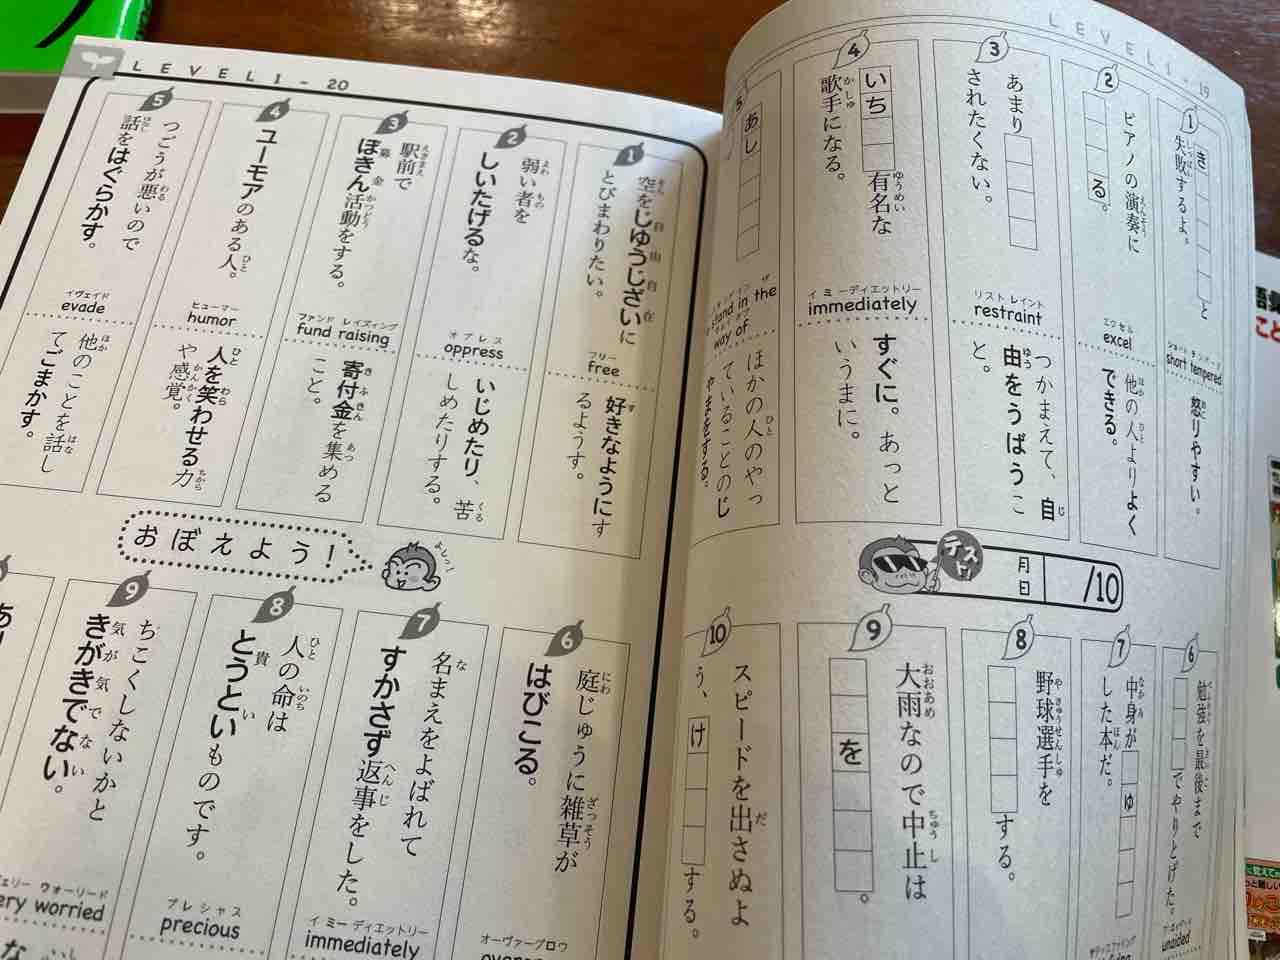 LEVEL1-19
1
き
と
失敗するよ。
しっぱい
short tempered
怒りやすい。
2
ピアノの演奏に
えんそう
る。
excel
エクセル
他の人よりよく
できる。
3
あまり
されたくない。
restraint
リストレイント
つかまえて、自
由をうばうこ
と。
4
いち
有名な
ゆうめい
歌手になる。
かしゅ
immediately
イミーディエットリー
すぐに。あっと
いうまに。
5
あし
stand in the
way of
ほかの人のやっ
ていることのじ
ゃまをする。
テスト!
月
日
/10
6
勉強を最後まで
でやりとげた。
unaided
7
中身が
なかみ
ゆ
した本だ。
ほん
8
野球選手を
やきゅうせんしゅ
する。
9
大雨なので中止は
おおあめ
ちゅうし
を
。
10
スピードを出さぬよ
う、
け
する。
LEVEL1-20
1
空をじゆうじざいに
自由自在
とびまわりたい。
free
フリー
好きなようにす
るようす。
2
弱い者を
よわ もの
しいたげるな。
oppress
オプレス
いじめたり、苦
しめたりする。
3
駅前で
えきまえ
ぼきん活動をする。
募金 かつどう
fund raising
ファンド レイズィング
寄付金を集める
きふきん あつ
こと。
4
ユーモアのある人。
ひと
humor
ヒューマー
人を笑わせる力
ひと わら ちから
や感覚。
かんかく
5
つごうが悪いので
わる
話をはぐらかす。
はなし
evade
イヴェイド
他のことを話し
ほか はな
てごまかす。
おぼえよう!
よしっ!
6
庭じゅうに雑草が
にわ ざっそう
はびこる。
オーヴァーグロウ
7
名まえをよばれて
な
すかさず返事をした。
へんじ
immediately
イミーディエットリー
8
人の命は
ひと いのち
とうといものです。
貴い
precious
プレシャス
9
ちこくしないかと
きがきでない。
気が気でない
ery worried
ェリー ウォーリード